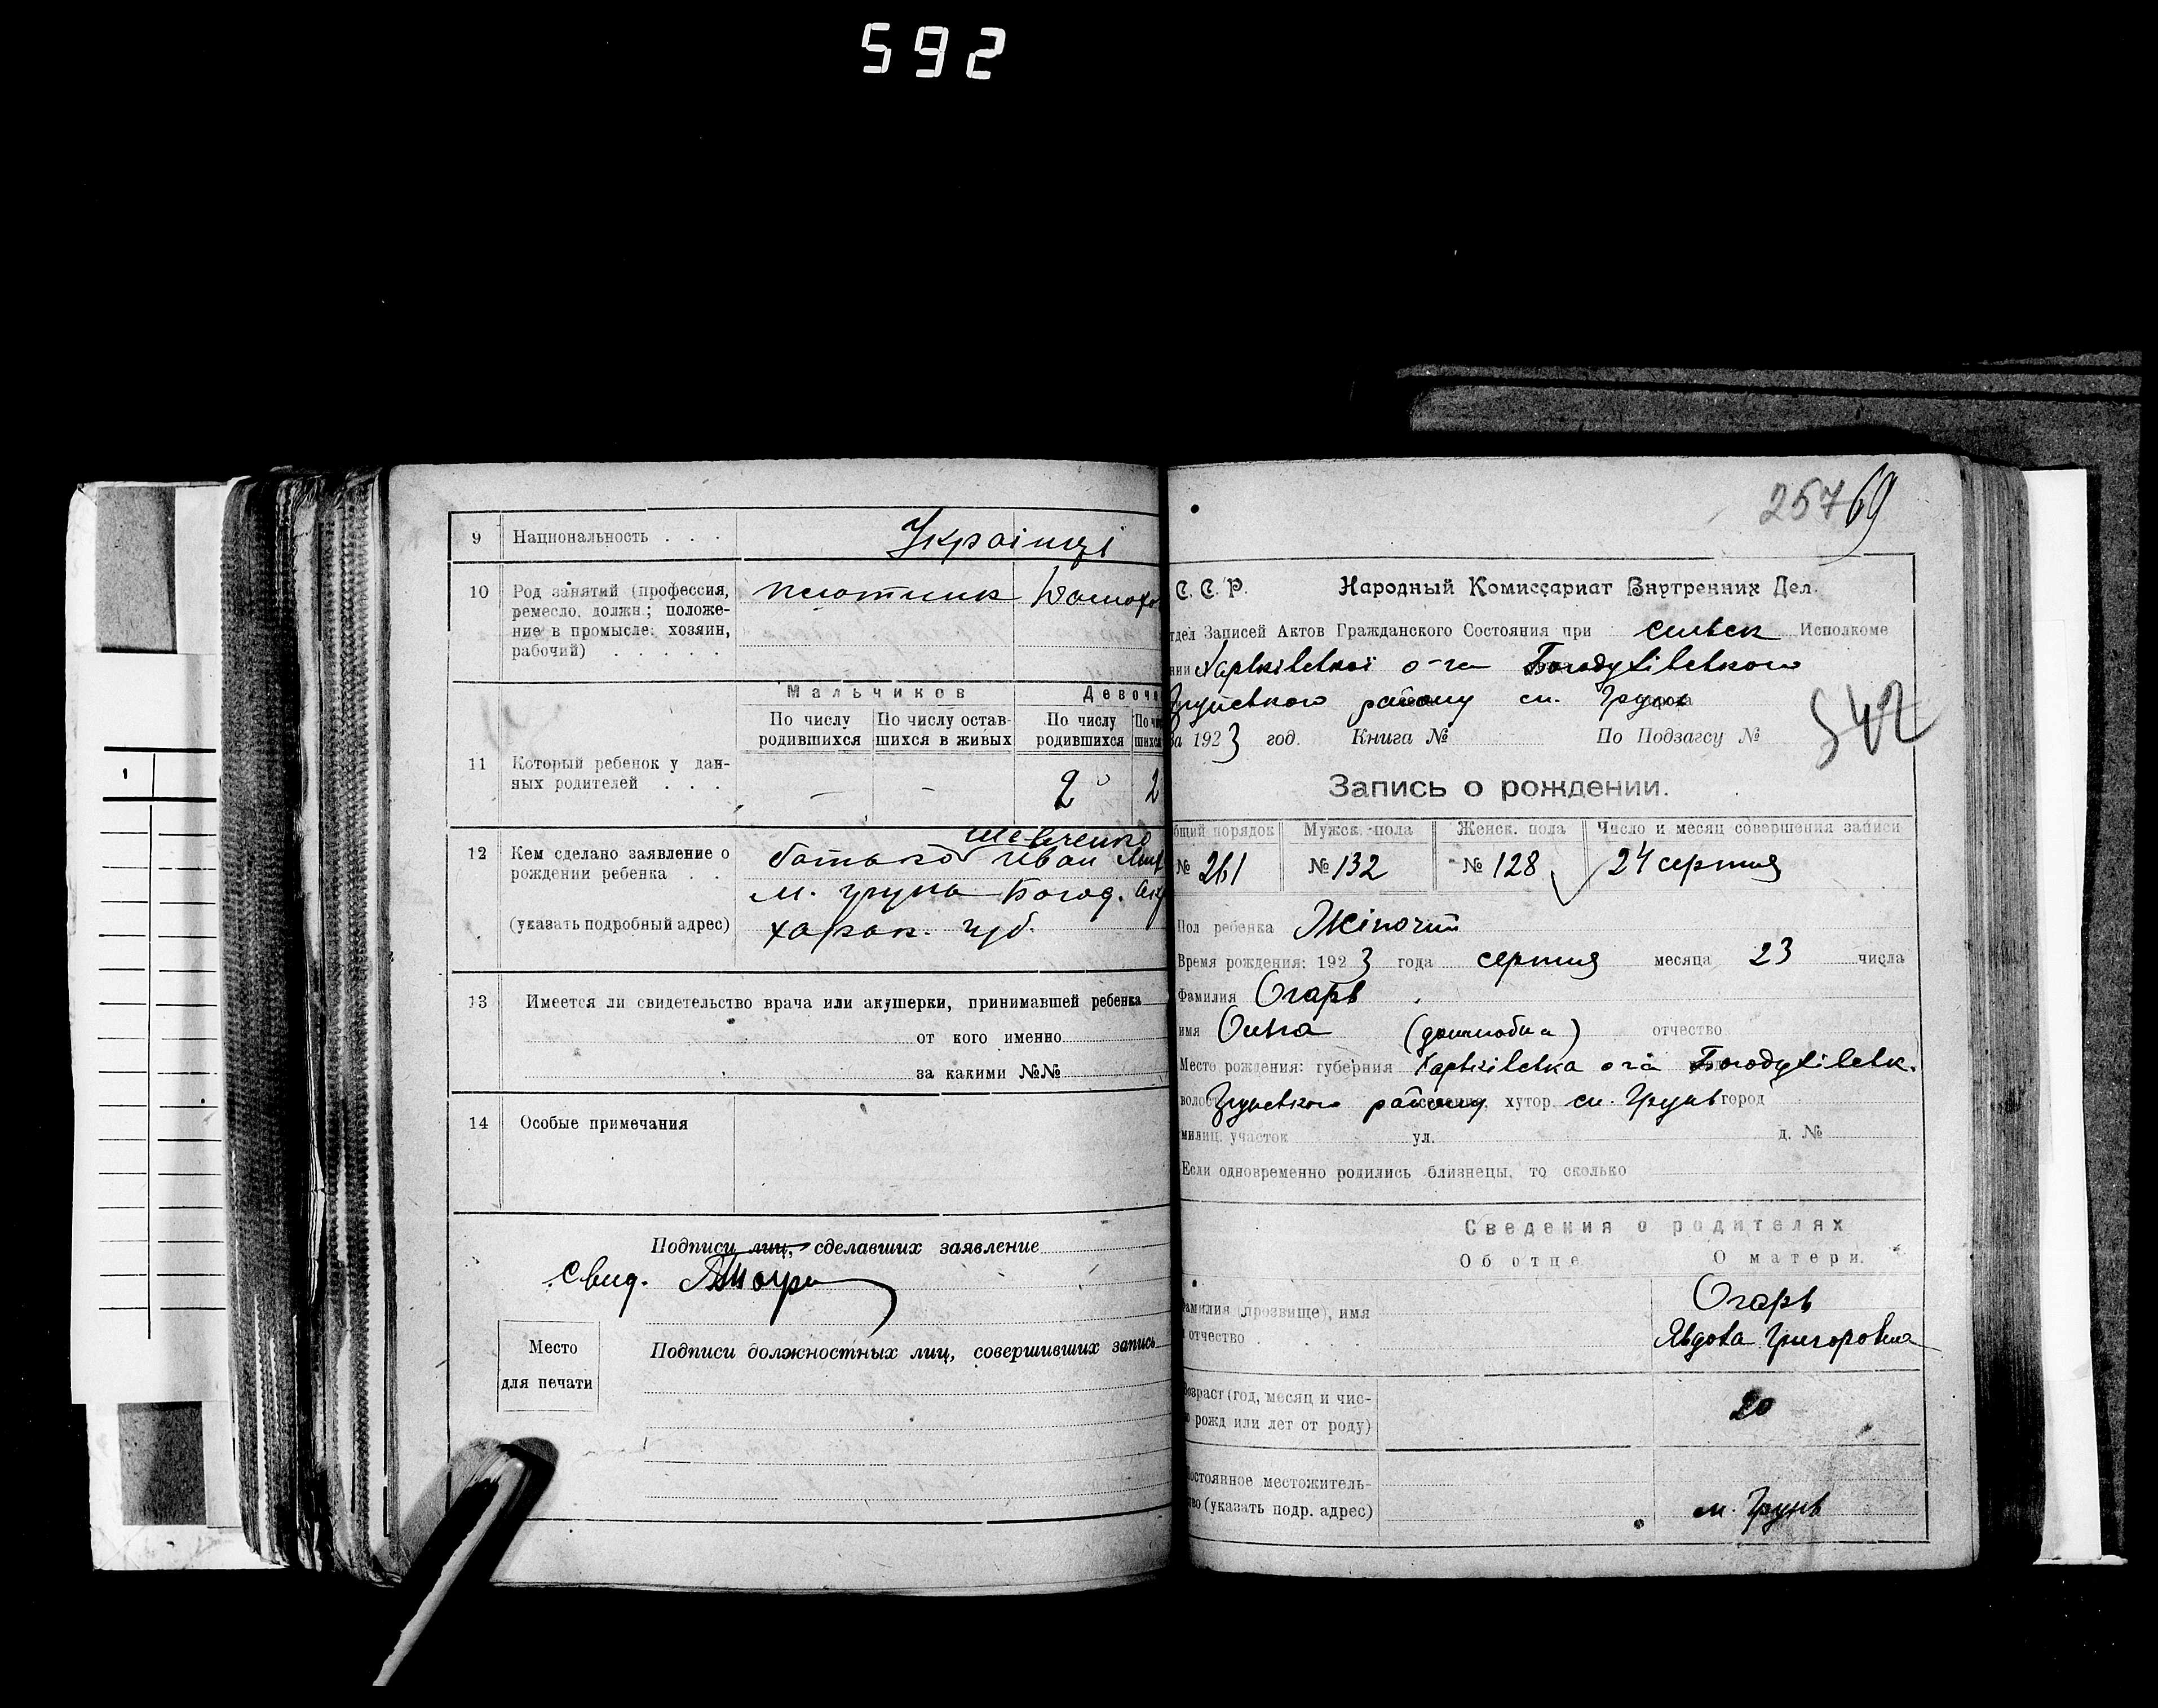 592
9 Национальность . . . Українці
10 Род занятий (профессия, плотник
ремесло, должн.; положе-
ние в промысле: хозяин,
рабочий) . . . . .
Мальчиков
По числу родившихся
По числу остав-
шихся в живых
По числу родившихся
11 Который ребенок у дан-
ных родителей . . . — — 2 2
Шевченко
12 Кем сделано заявление о батько Иван
рождении ребенка . .
м. Грунь Богод.
(указать подробный адрес) харьк. губ.
13 Имеется ли свидетельство врача или акушерки, принимавшей ребенка
от кого именно
за какими №№
14 Особые примечания
Подписи лиц, сделавших заявление
Свид.
Место
для печати
Подписи должностных лиц, совершивших запись
257 69
С. С. Р. Народный Комиссариат Внутренних Дел.
Записей Актов Гражданского Состояния при сильск Исполкоме
Харьківської о-ги Богодухівського
району сл. Грунь
1923 год. Книга № По Подзагсу №
542
Запись о рождении.
порядок Мужск. пола Женск. пола Число и месяц совершения записи
№ 261 № 132 № 128 24 серпня
Пол ребенка Жіночий
Время рождения: 1923 года серпня месяца 23 числа
Фамилия Огарь
имя (дошлюбна) отчество
Место рождения: губерния Харьківська о-га Богодухівськ.
району, хутор сл. Грунь город
милиц. участок ул. д. №
Если одновременно родились близнецы, то сколько
Сведения о родителях
Об отце О матери.
Фамилия (прозвище), имя Огарь
и отчество . . . Явдоха Григоровна
Возраст (год, месяц и чис- 20
рожд или лет от роду)
Постоянное местожитель-
(указать подр. адрес) м. Грунь